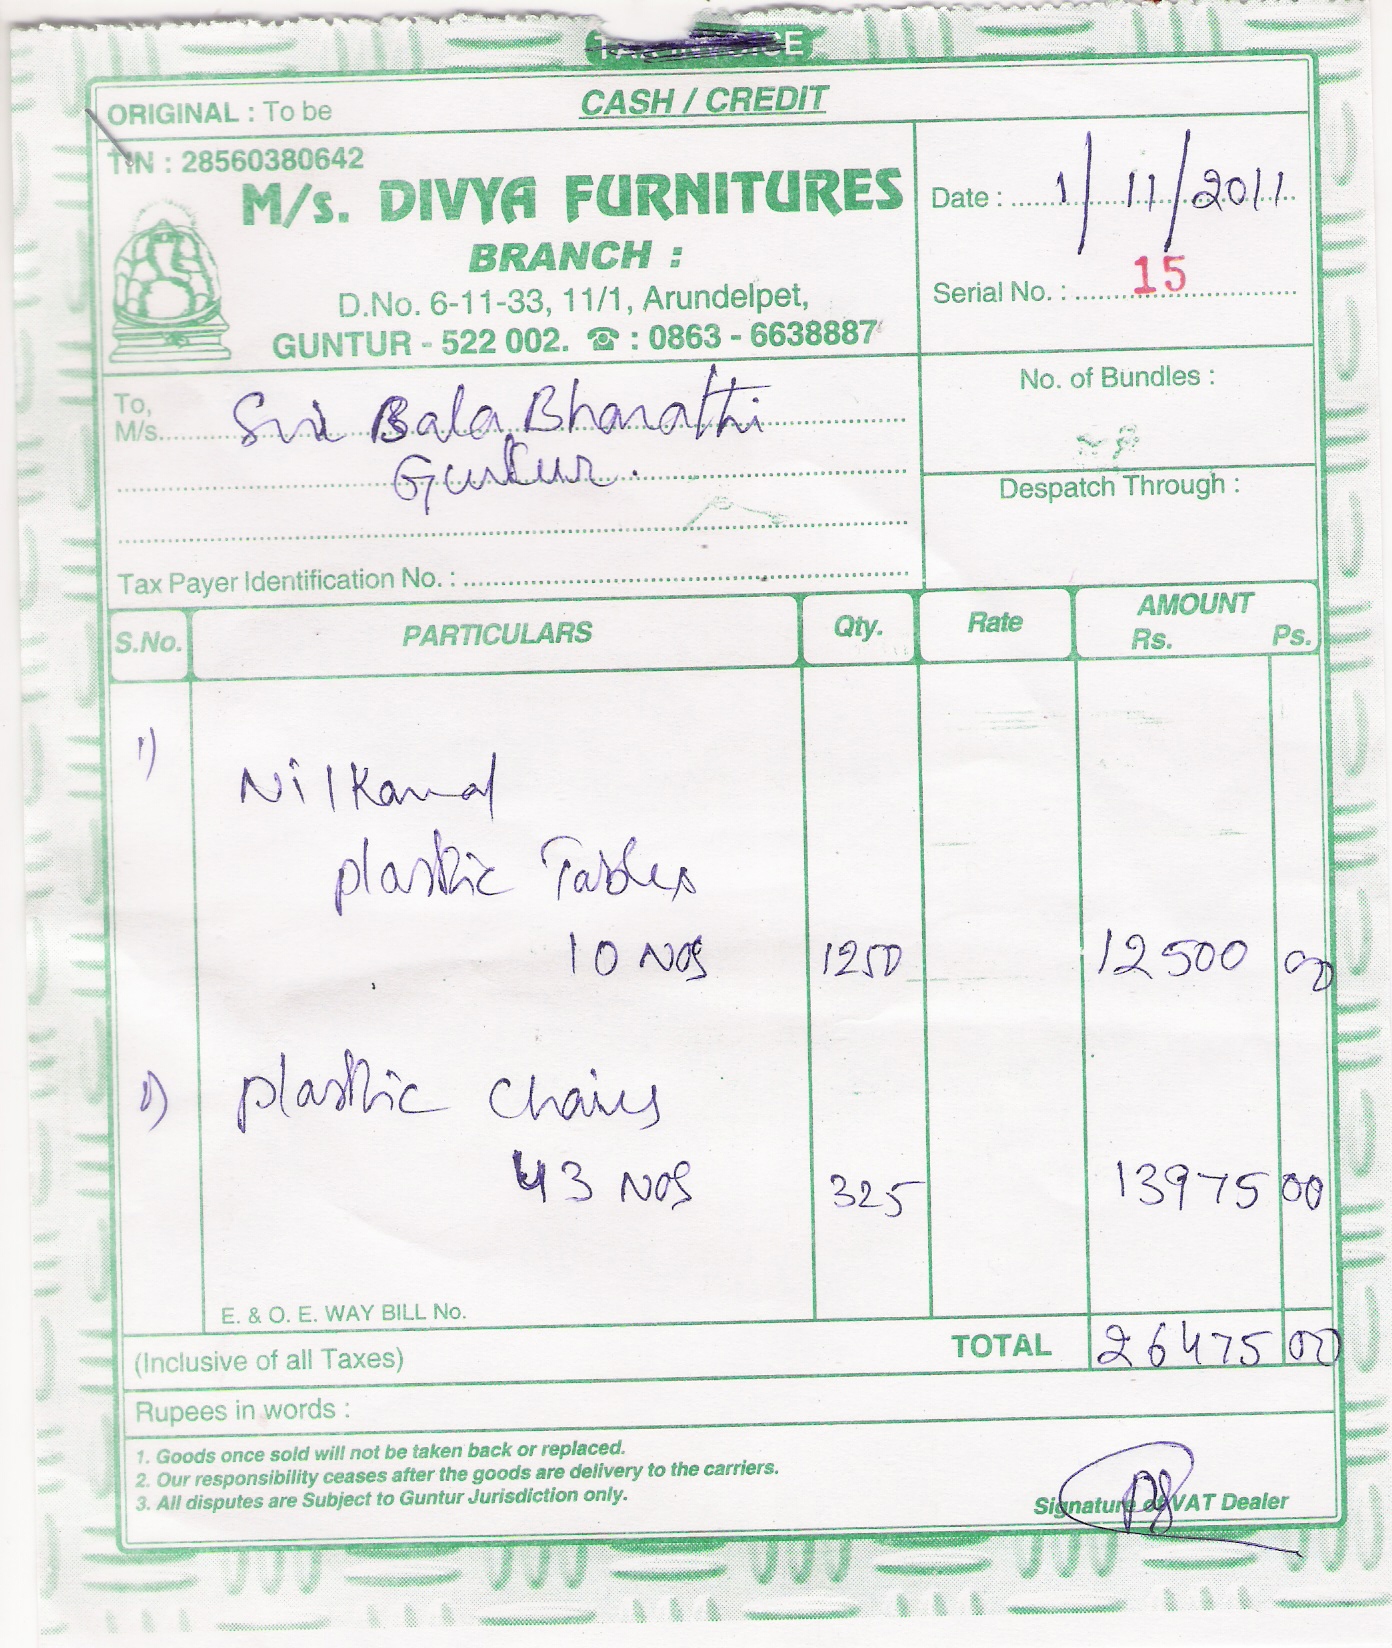 TAX INVOICE
ORIGINAL : To be
CASH / CREDIT
TIN : 28560380642
M/s. DIVYA FURNITURES
BRANCH :
D.No. 6-11-33, 11/1, Arundelpet,
GUNTUR - 522 002. ☎ : 0863 - 6638887
Date : 1/11/2011
Serial No. : 15
To,
M/s. Sri Bala Bharathi
Guntur.
No. of Bundles :
Despatch Through :
Tax Payer Identification No. :
S.No. PARTICULARS Qty. Rate AMOUNT
Rs. Ps.
1) Nilkamal
plastic Tables
10 Nos 1250 12500 00
2) plastic chairs
43 Nos 325 13975 00
E. & O. E. WAY BILL No.
(Inclusive of all Taxes) TOTAL 26475 00
Rupees in words :
1. Goods once sold will not be taken back or replaced.
2. Our responsibility ceases after the goods are delivery to the carriers.
3. All disputes are Subject to Guntur Jurisdiction only.
Signature of VAT Dealer